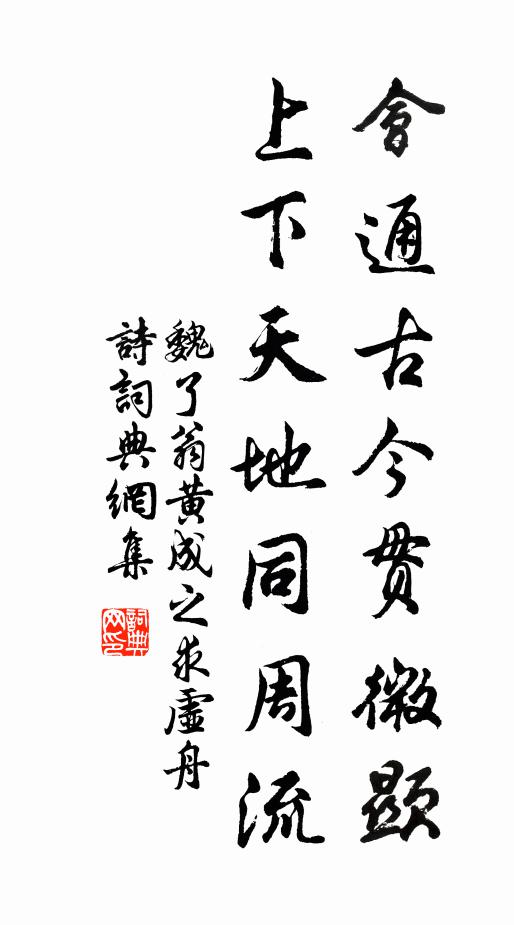 會通古今貫微顯
上下天地同周流
魏了翁黄成之求虛舟
詩詞典網集
詞典网印